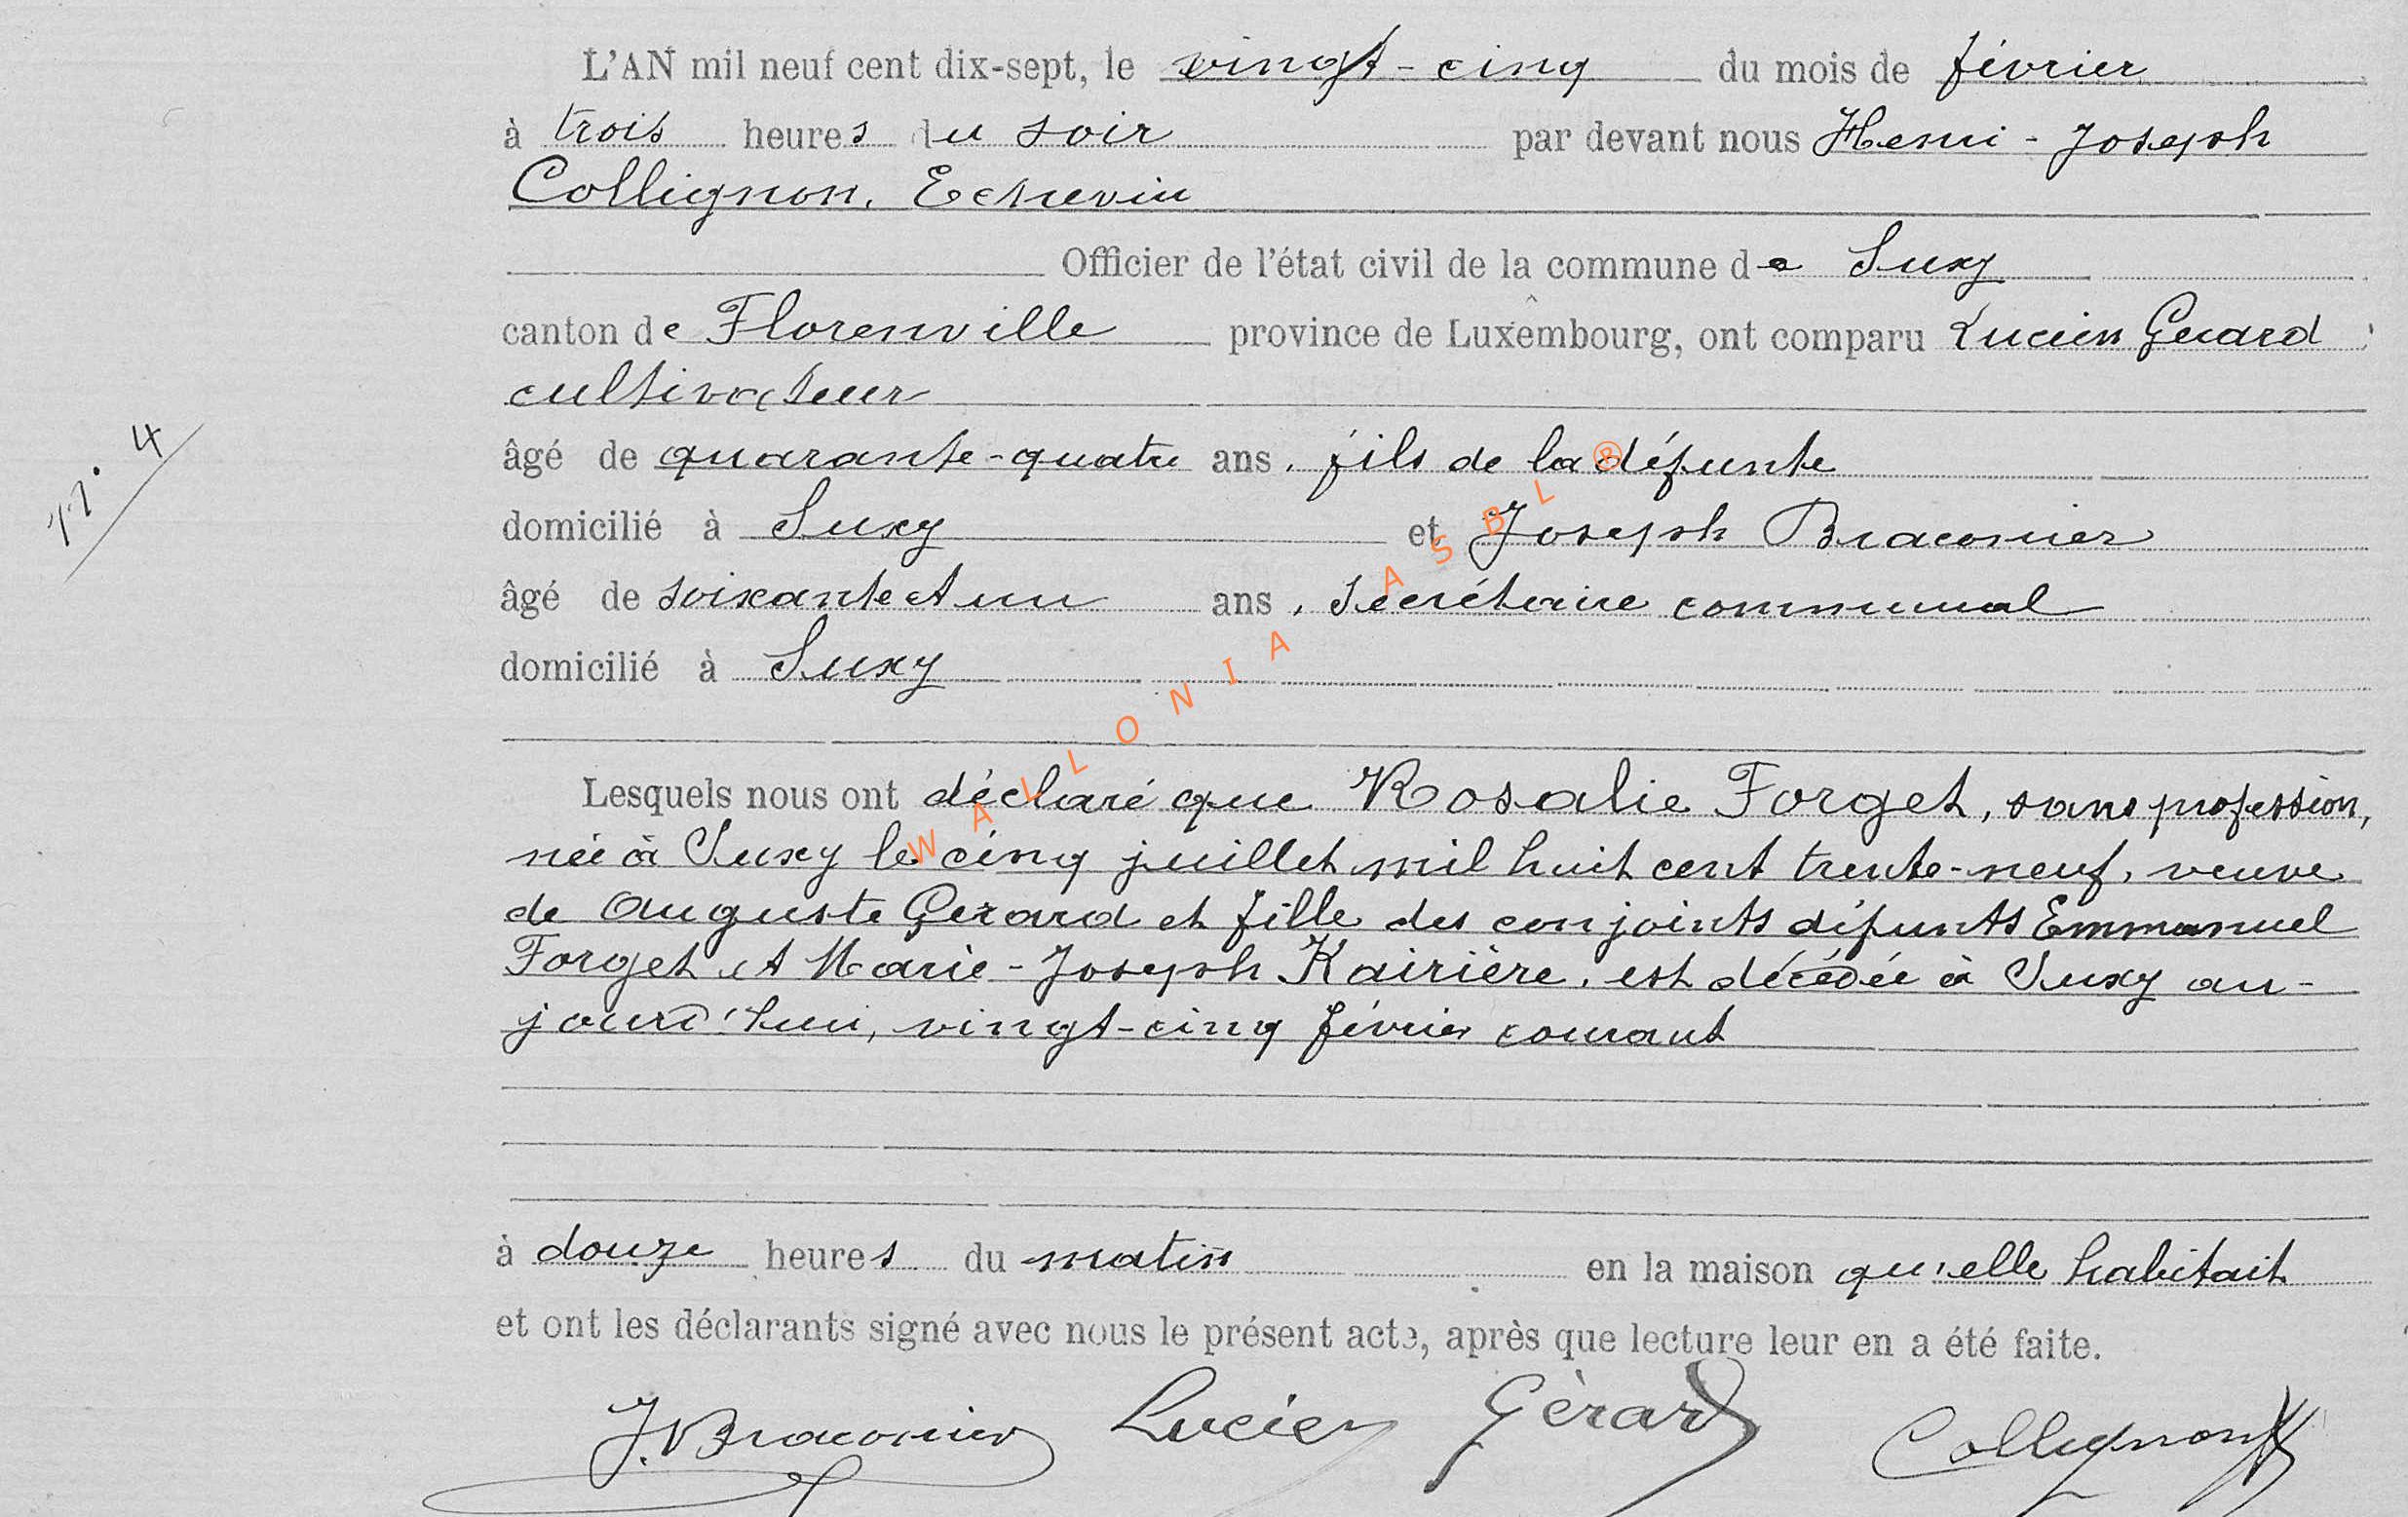 L'AN mil neuf cent dix-sept, le vingt-cinq du mois de février
à trois heures du soir par devant nous Henri-Joseph
Collignon, Echevin
Officier de l'état civil de la commune de Suxy
canton de Florenville province de Luxembourg, ont comparu Lucien Gerard
cultivateur
N° 4
âgé de quarante-quatre ans, fils de la défunte
domicilié à Suxy et Joseph Braconier
âgé de soixante et un ans, Secrétaire communal
domicilié à Suxy
WALLONIA ASBL ®
Lesquels nous ont déclaré que Rosalie Forget, sans profession,
née à Suxy le cinq juillet mil huit cent trente-neuf, veuve
de Auguste Gerard et fille des conjoints défunts Emmanuel
Forget et Marie-Joseph Kairière, est décédée à Suxy au-
jourd'hui, vingt-cinq février courant
à douze heures du matin en la maison qu'elle habitait
et ont les déclarants signé avec nous le présent acte, après que lecture leur en a été faite.
J. Braconier Lucien Gèrard Collignon